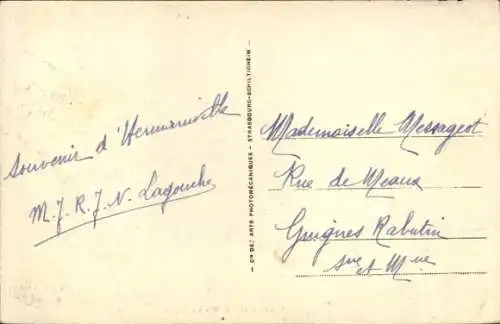 Souvenir d'Hermanville
M. J. R. J. N. Lagouche
— Cie DES ARTS PHOTOMÉCANIQUES - STRASBOURG-SCHILTIGHEIM —
Mademoiselle Messageot
Rue de Meaux
Guignes Rabutin
Sne et Mne